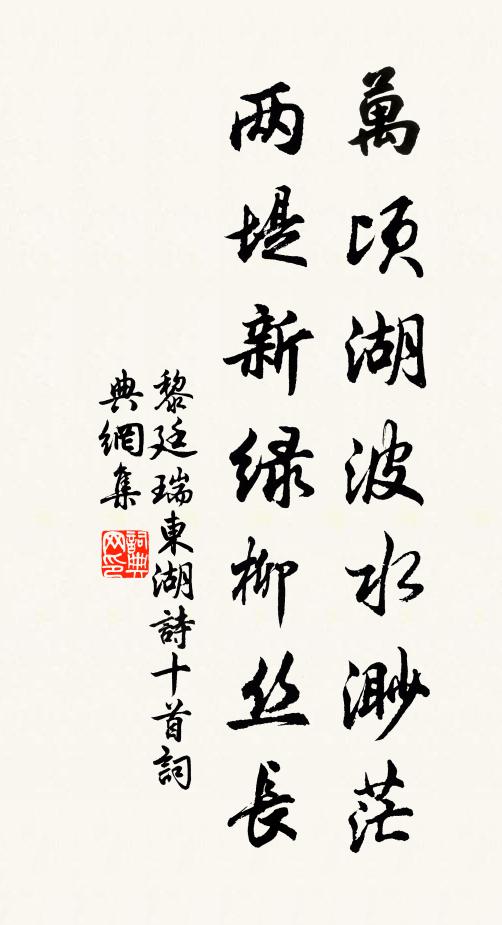 萬頃湖波水渺茫
两堤新緑柳丝長
黎廷瑞東湖詩十首詞
典網集
詞典
网印